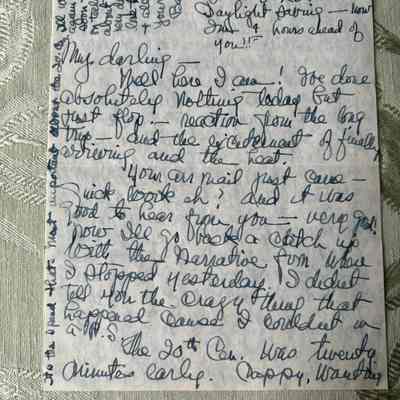 Daylight Saving — now
I'm 4 hours ahead of
you!!
My darling —
Well here I am —! I've done
absolutely nothing today but
just flop — reaction from the long
trip — and the excitement of finally
arriving and the heat.
Your air mail just came —
Quick work eh? and it was
good to hear from you — very good.
Now I'll go back & catch up
with the narrative from where
I stopped yesterday. I didn't
tell you the crazy thing that
happened cause I couldn't in
a P.S.
The 20th Cen. was twenty
minutes early. Happy, wanting